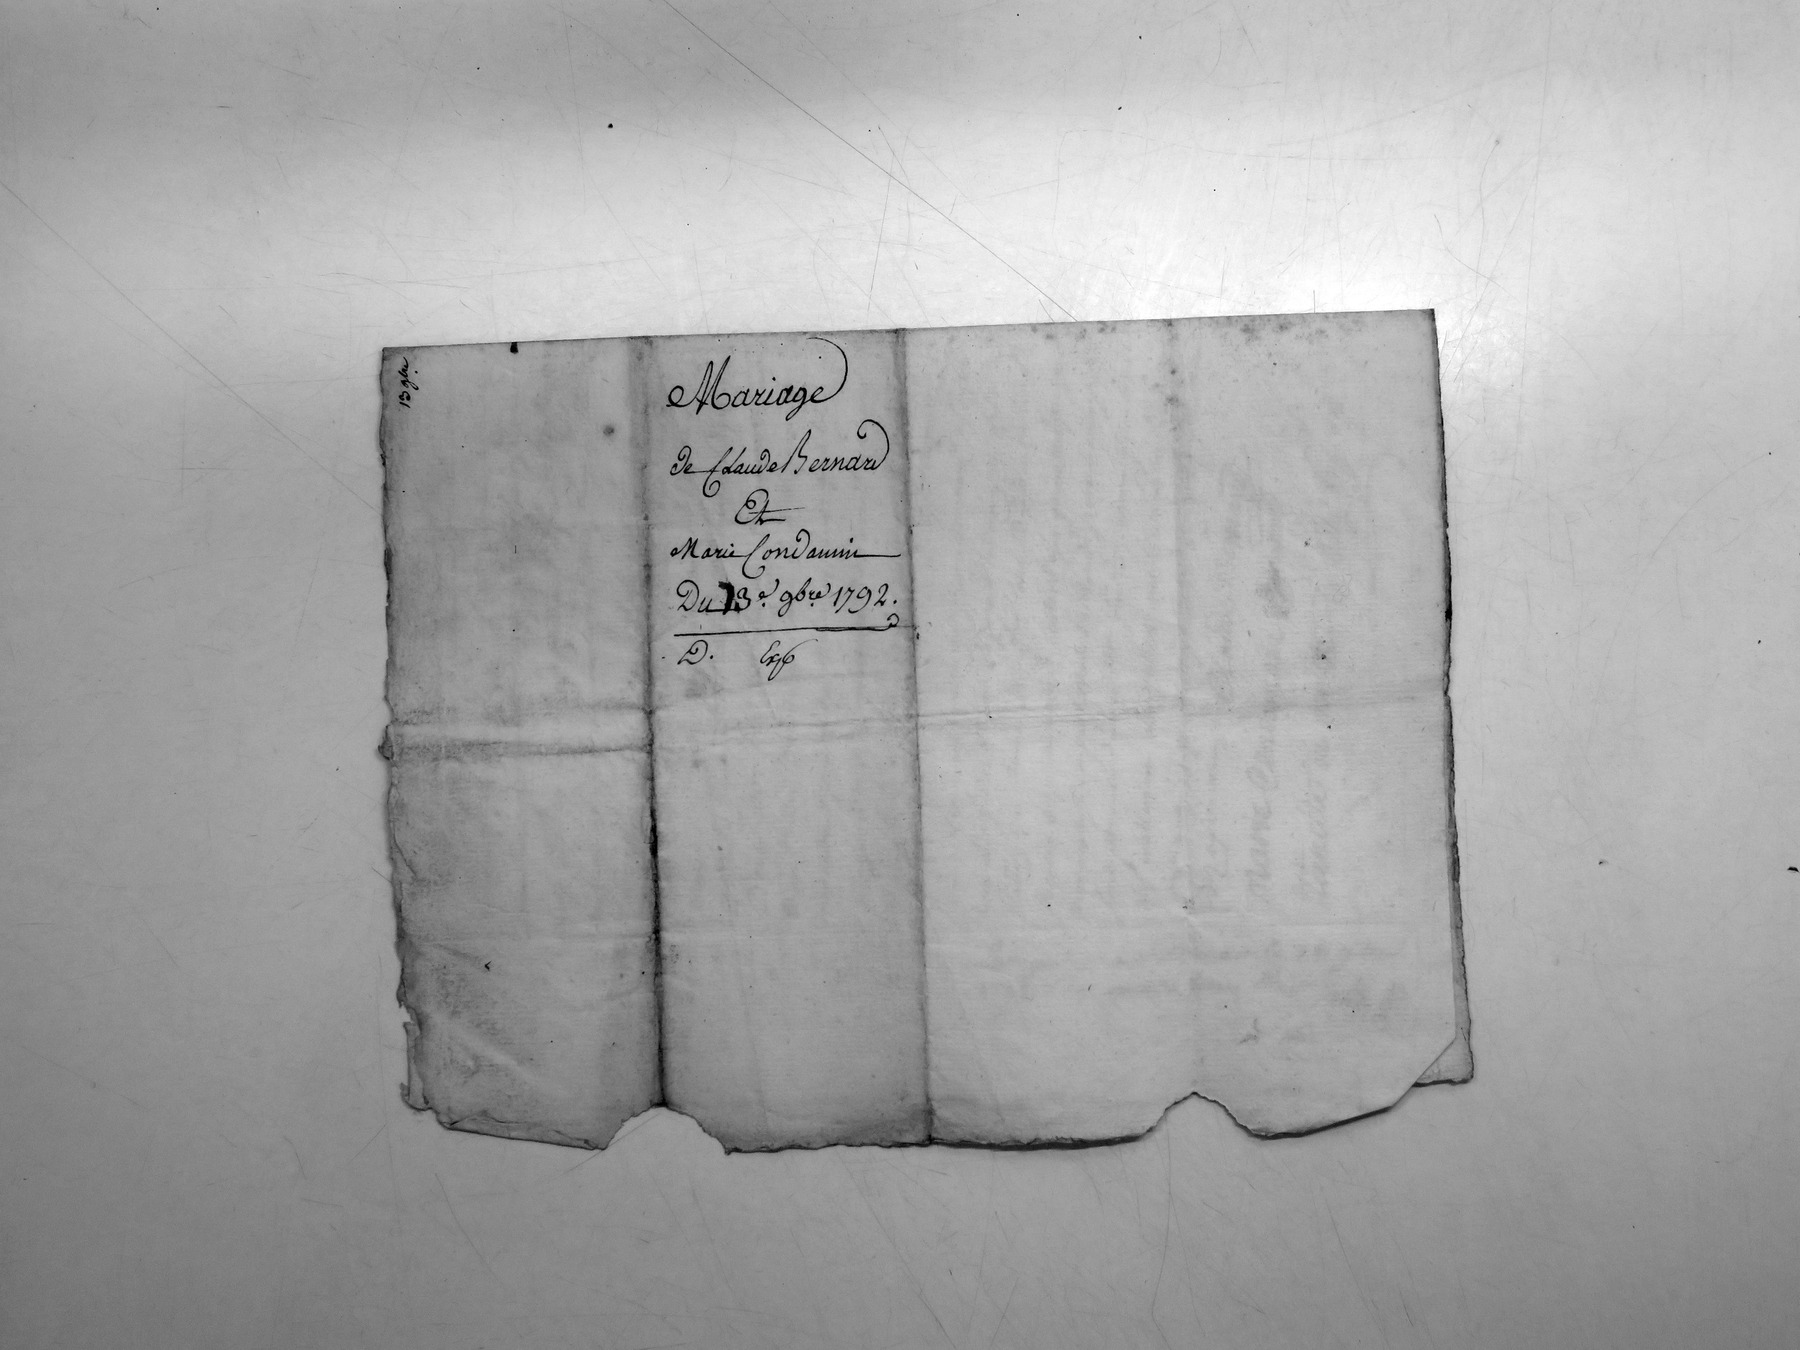 13 9bre
Mariage
de Claude Bernard
Et
Marie Condamin
Du 13e. 9bre 1792.
D. Exp